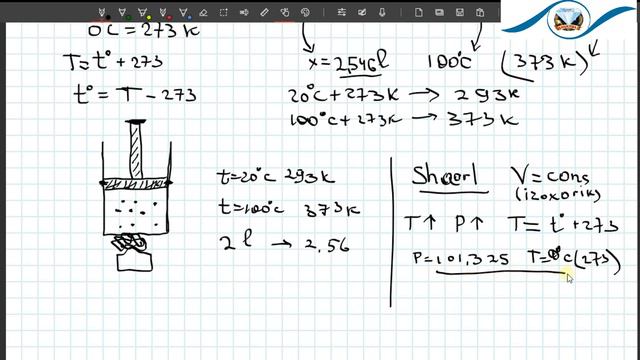 0C = 273 K
T = t° + 273
t° = T - 273
x = 2,546 l 100°C (373 K)
20°C + 273 K → 293 K
100°C + 273 K → 373 K
t = 20°C 293 K
t = 100°C 373 K
2 l → 2,56
Sharl V = cons
(izoxorik)
T↑ P↑ T = t° + 273
P = 101,325 T = 0°C (273)